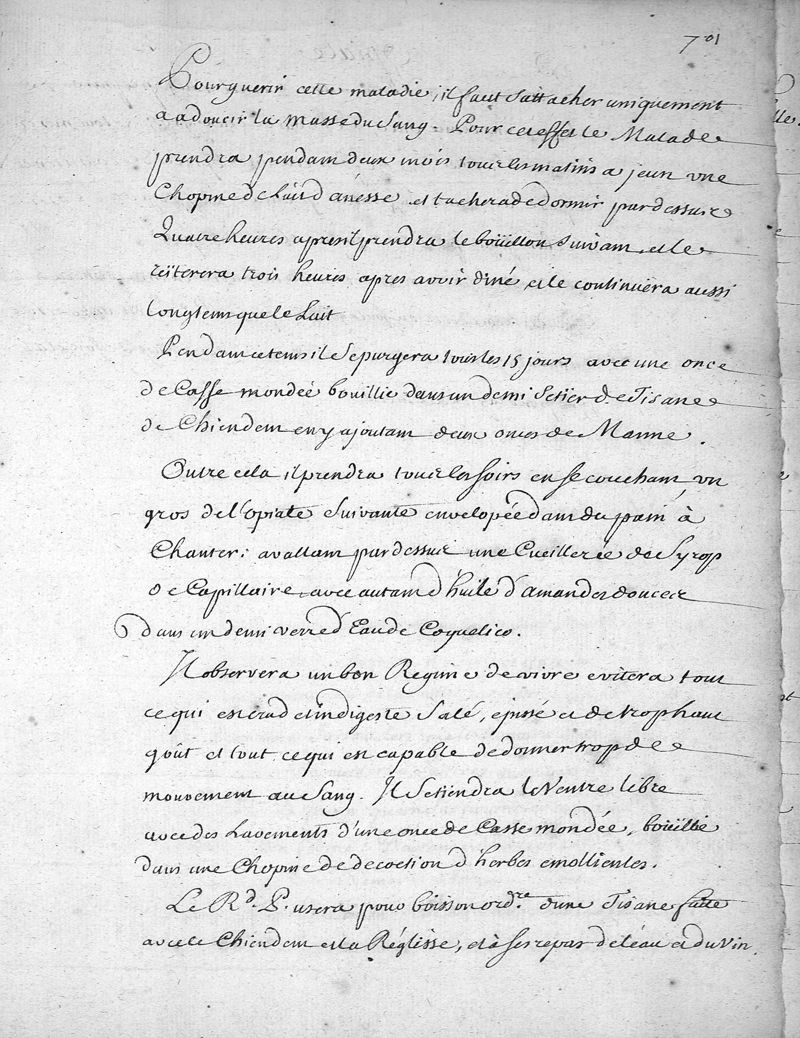 701
Pour guerir cette maladie, il faut s'attacher uniquement
a adoucir la masse du sang. Pour cet effet le Malade
prendra pendant deux mois tous les matins a jeun vne
Chopine de Lait d'anesse et tachera de dormir par dessus
Quatre heures apres il prendra le boüillon suivant, et le
reïterera trois heures apres avoir diné et le continuera aussi
longtems que le Lait
Pendant ce tems il se purgera tous les 15 jours avec une once
de Casse mondeé bouillie dans un demi Setier de Tisane
de Chiendent en y ajoutant deux onces de Manne.
Outre cela il prendra tous les soirs en se couchant vn
gros de l'opiate suivante envelopée dans du pain à
Chanter; avallant par dessus une Cueillerée de Syrop
de Capillaire avec autant d'huile d'amandes douces
dans un demi verre d'Eau de Coquelico.
Il observera un bon Regime de vivre evitera tout
ce qui est crud et indigeste salé, epissé et de trop haut
goût et tout ce qui est capable de donner trop de
mouvement au sang. Il se tiendra le Ventre libre
avec des Lavements d'une once de Casse mondée, boüillie
dans une Chopine de decoction d'herbes emollientes.
Le Rd. P. usera pour boisson ordre. d'une Tisane faite
avec le Chiendent et la Réglisse, et à ses repas de l'eau et du vin.